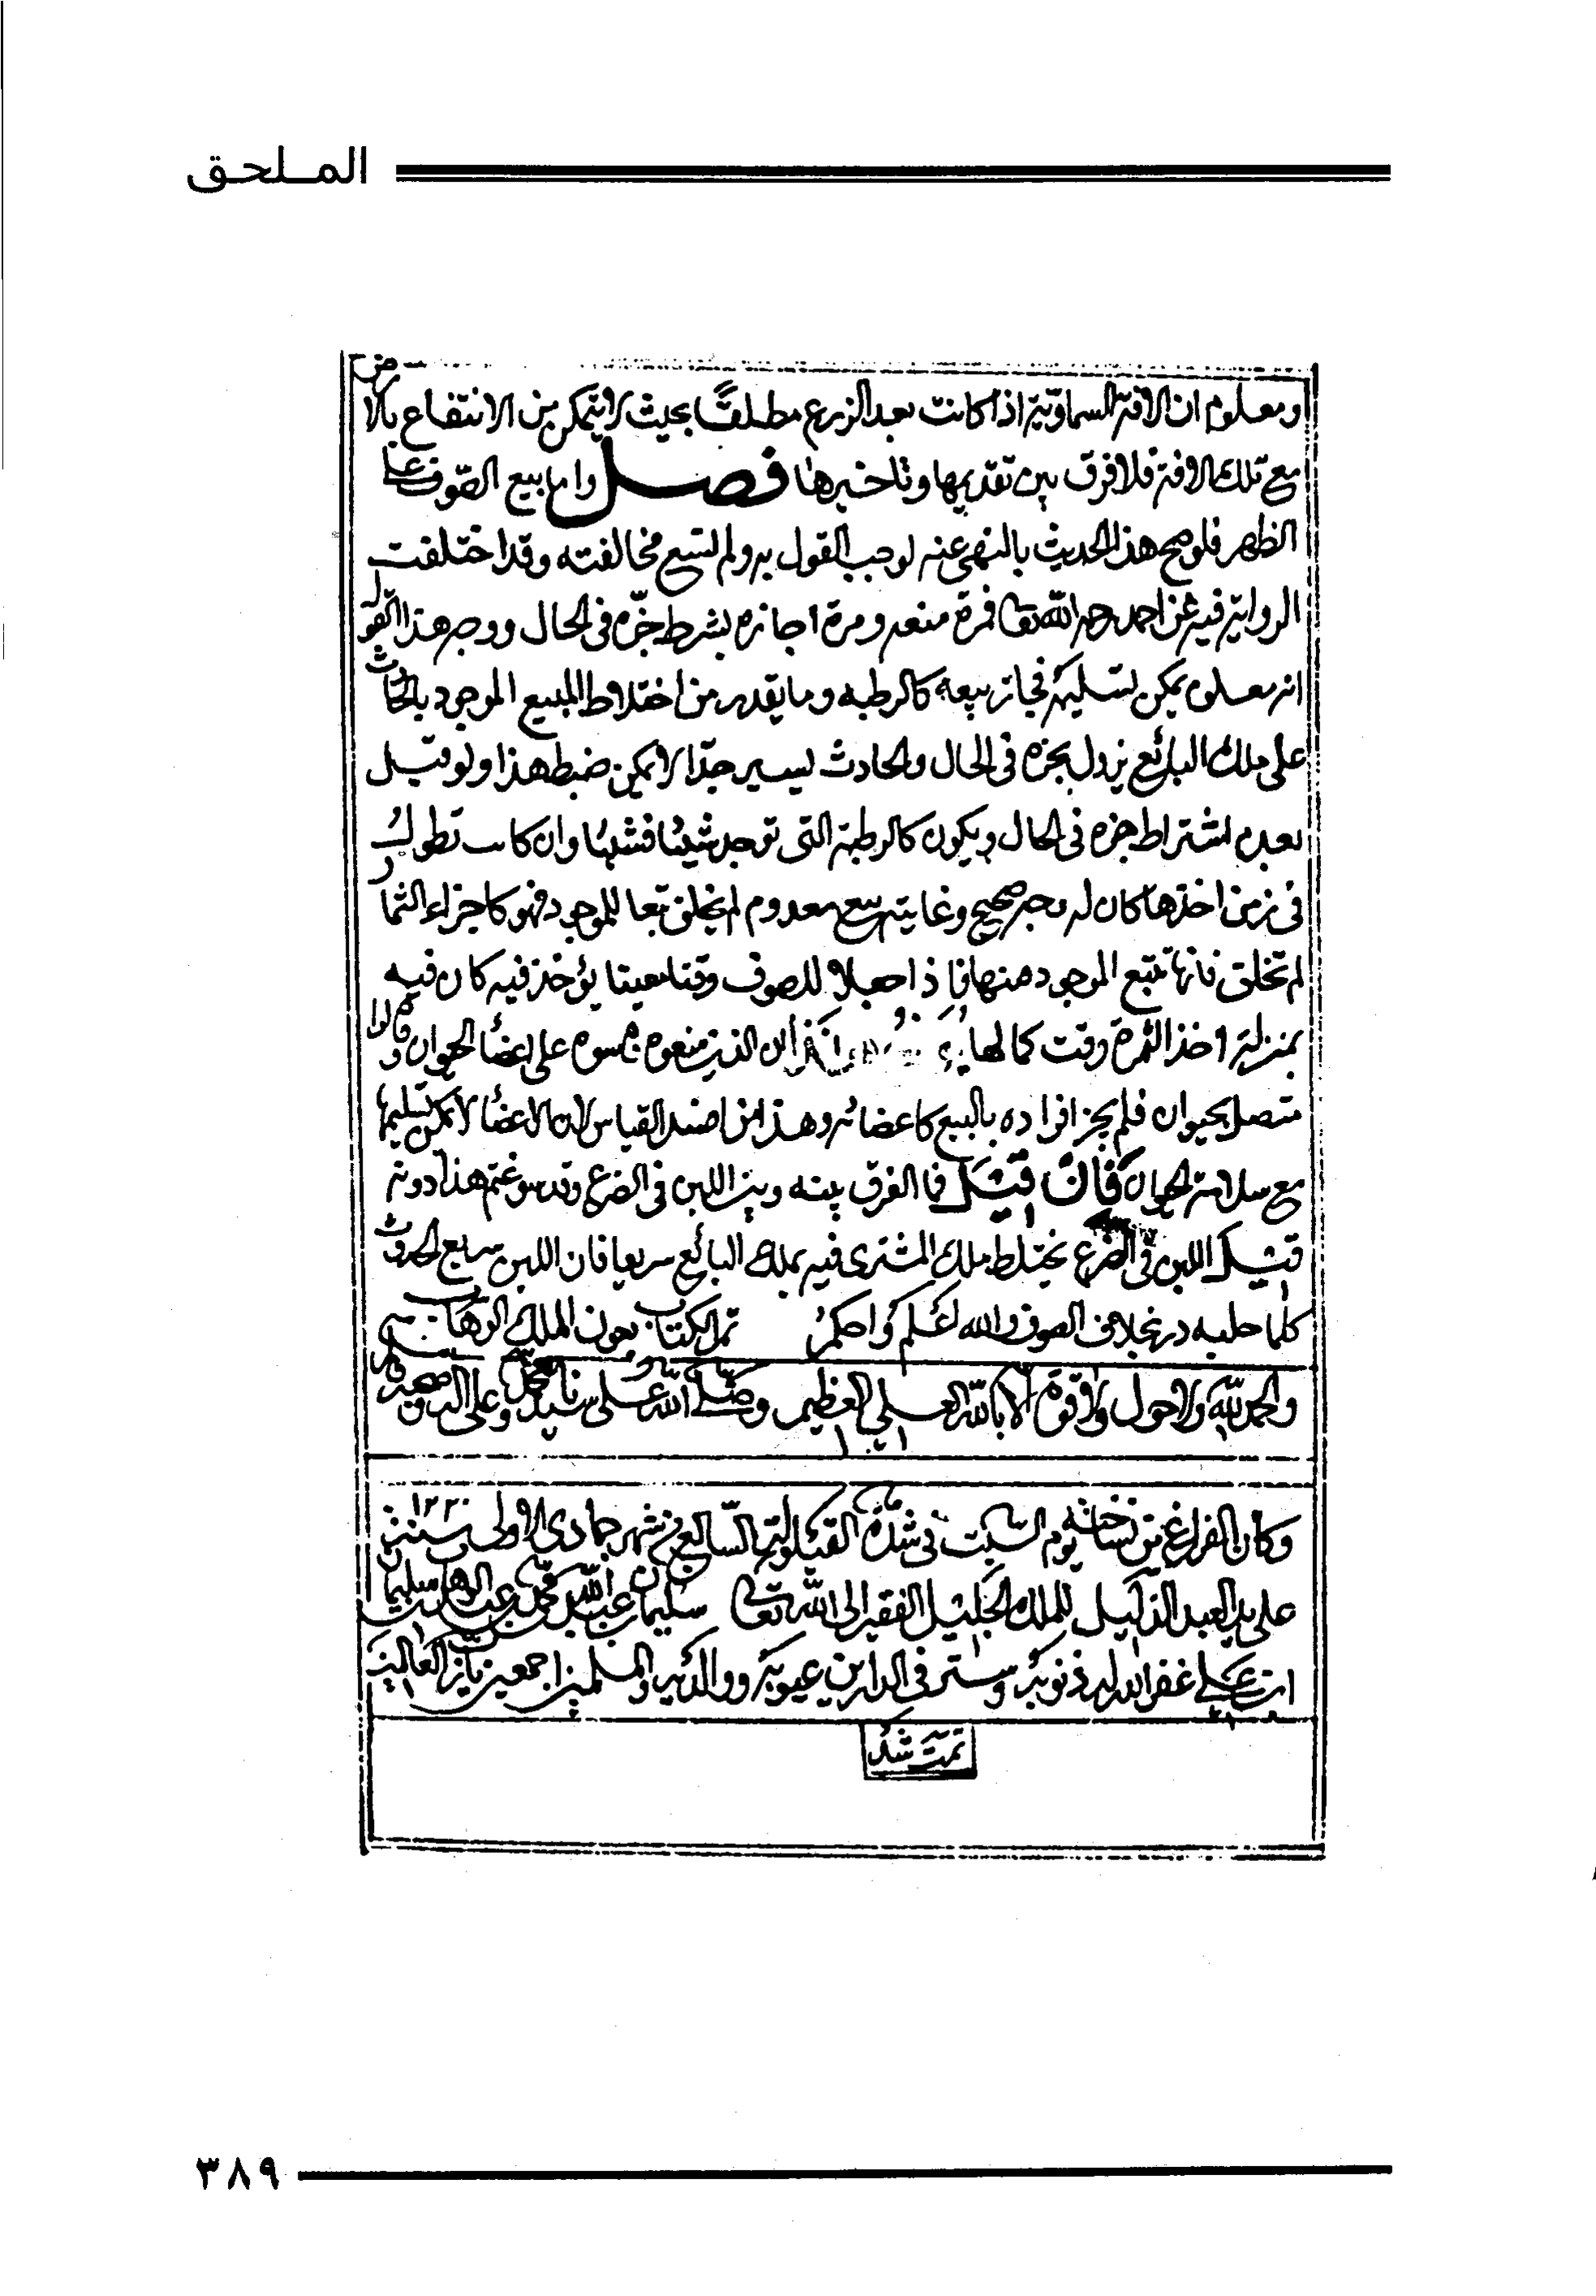 الملحق
ومعلوم ان الافة السماوية اذا كانت بعد الزرع مطلقًا بحيث لا يتمكن من الانتفاع بالارض
مع تلك الافة فلا فرق بين تقديمها وتاخيرها فصل واما بيع الصوف على
الظهر فلو صح هذا الحديث بالنهي عنه لوجب القول به ولم تسع مخالفته وقد اختلفت
الرواية فيه عن احمد رحمه الله تعالى فمرة منعه ومرة اجازه بشرط جزه في الحال ووجه هذا القول
انه معلوم يمكن تسليمه فجاز بيعه كالرطبه وما يقدر من اختلاط المبيع الموجود بالحادث
على ملك البائع يزول بجزه في الحال والحادث يسير جدّا لا يمكن ضبطه هذا ولو قيل
بعدم اشتراط جزه في الحال ويكون كالرطبة التي توجد شيئا فشيئا وان كانت تطول
في زمن اخذها كان له وجه صحيح وغايته بيع معدوم لم يخلق تبعا للموجود فهو كاجزاء الثمار
لم تخلق فانها تتبع الموجود منها فاذا جعلا للصوف وقتا معينا يؤخذ فيه كان فيه
بمنزلة اخذ الثمرة وقت كمالها الذين منعوه قاسوه على اعضاء الحيوان وقالوا
متصل بحيوان فلم يجز افراده بالبيع كاعضائه وهذا من افسد القياس لان الاعضاء لا يمكن تسليمها
مع سلامة الحيوان فان قيل فما الفرق بينه وبين اللبن في الضرع وقد سوغتم هذا دونه
قيل اللبن في الضرع يختلط ملك المشترى فيه بملك البائع سريعا فان اللبن سريع الحدوث
كلما حلبه در بخلاف الصوف والله اعلم واحكم تم الكتاب بعون الملك الوهاب
والحمد لله ولا حول ولا قوة الا بالله العلي العظيم وصلى الله على سيدنا محمد وعلى اله وصحبه وسلم
وكان الفراغ من نساخته يوم السبت في شدة القيلولة السابع من شهر جمادى الاولى سنة ١٢٢٠
على يد العبد الذليل للملك الجليل الفقير الى الله تعالى سليمان بن عبدالله بن محمد بن عبدالوهاب بن سليمان
ابن علي غفر الله له ذنوبه وستر في الدارين عيوبه ووالديه والمسلمين اجمعين العالمين
تمت شد
٣٨٩